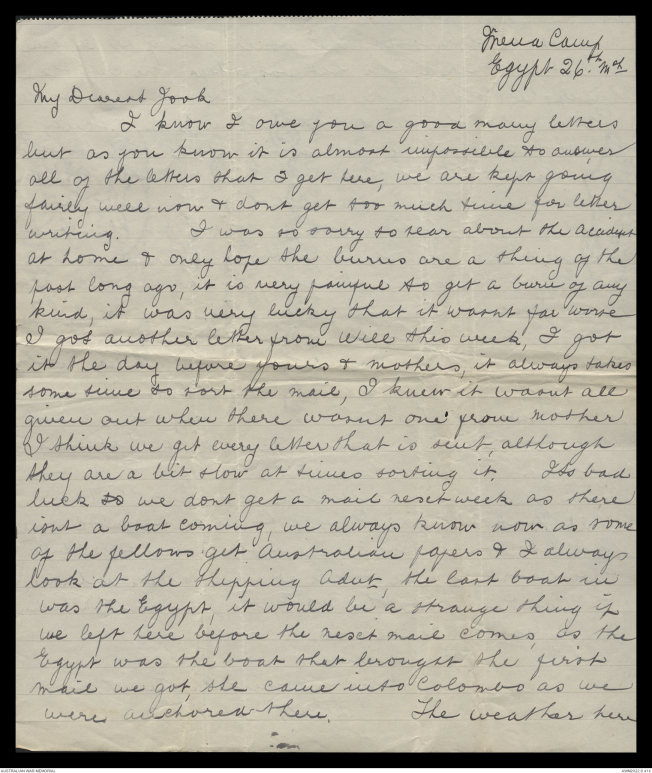 Mena Camp
Egypt 26th Mch
My Dearest Jook
I know I owe you a good many letters
but as you know it is almost impossible to answer
all of the letters that I get here, we are kept going
fairly well now & dont get too much time for letter
writing. I was so sorry to tear about the accident
at home & only hope the burns are a thing of the
past long ago, it is very painful to get a burn of any
kind, it was very lucky that it wasnt far worse
I got another letter from Will this week, I got
it the day before yours & mothers, it always takes
some time to sort the mail, I knew it wasnt all
given out when there wasnt one from Mother
I think we get every letter that is sent, although
they are a bit slow at times sorting it. Its bad
luck to we dont get a mail next week as there
isnt a boat coming, we always know now as some
of the fellows get Australian papers & I always
look at the Shipping Advt, the last boat in
was the Egypt, it would be a strange thing if
we left here before the next mail comes, as the
Egypt was the boat that brought the first
mail we got, she came into Colombo as we
were anchored there. The weather here
AUSTRALIAN WAR MEMORIAL